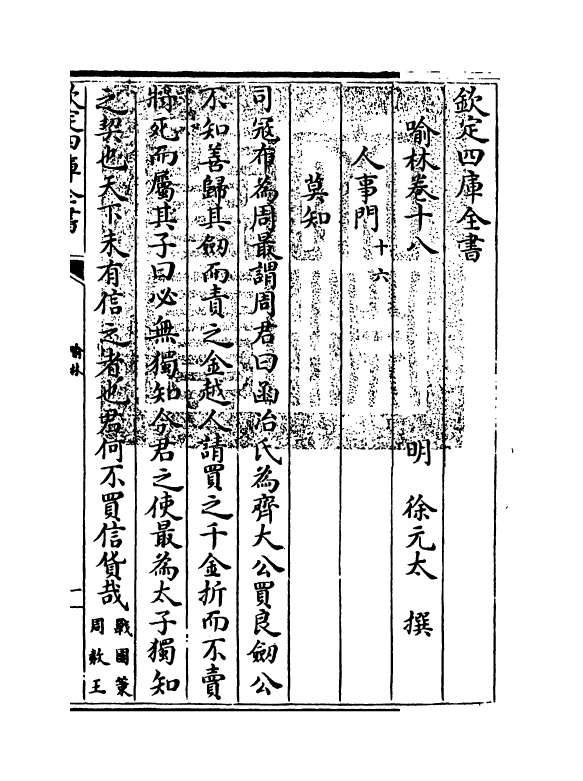 欽定四庫全書
喻林卷十八
明 徐元太 撰
人事門十六
莫知
司冦布為周最謂周君曰函冶氏為齊大公買良劒公
不知善歸其劒而責之金越人請買之千金折而不賣
將死而屬其子曰必無獨知今君之使最為太子獨知
之契也天下未有信之者也君何不買信貨哉
戰國策
周赧王
欽定四庫全書
喻林
一